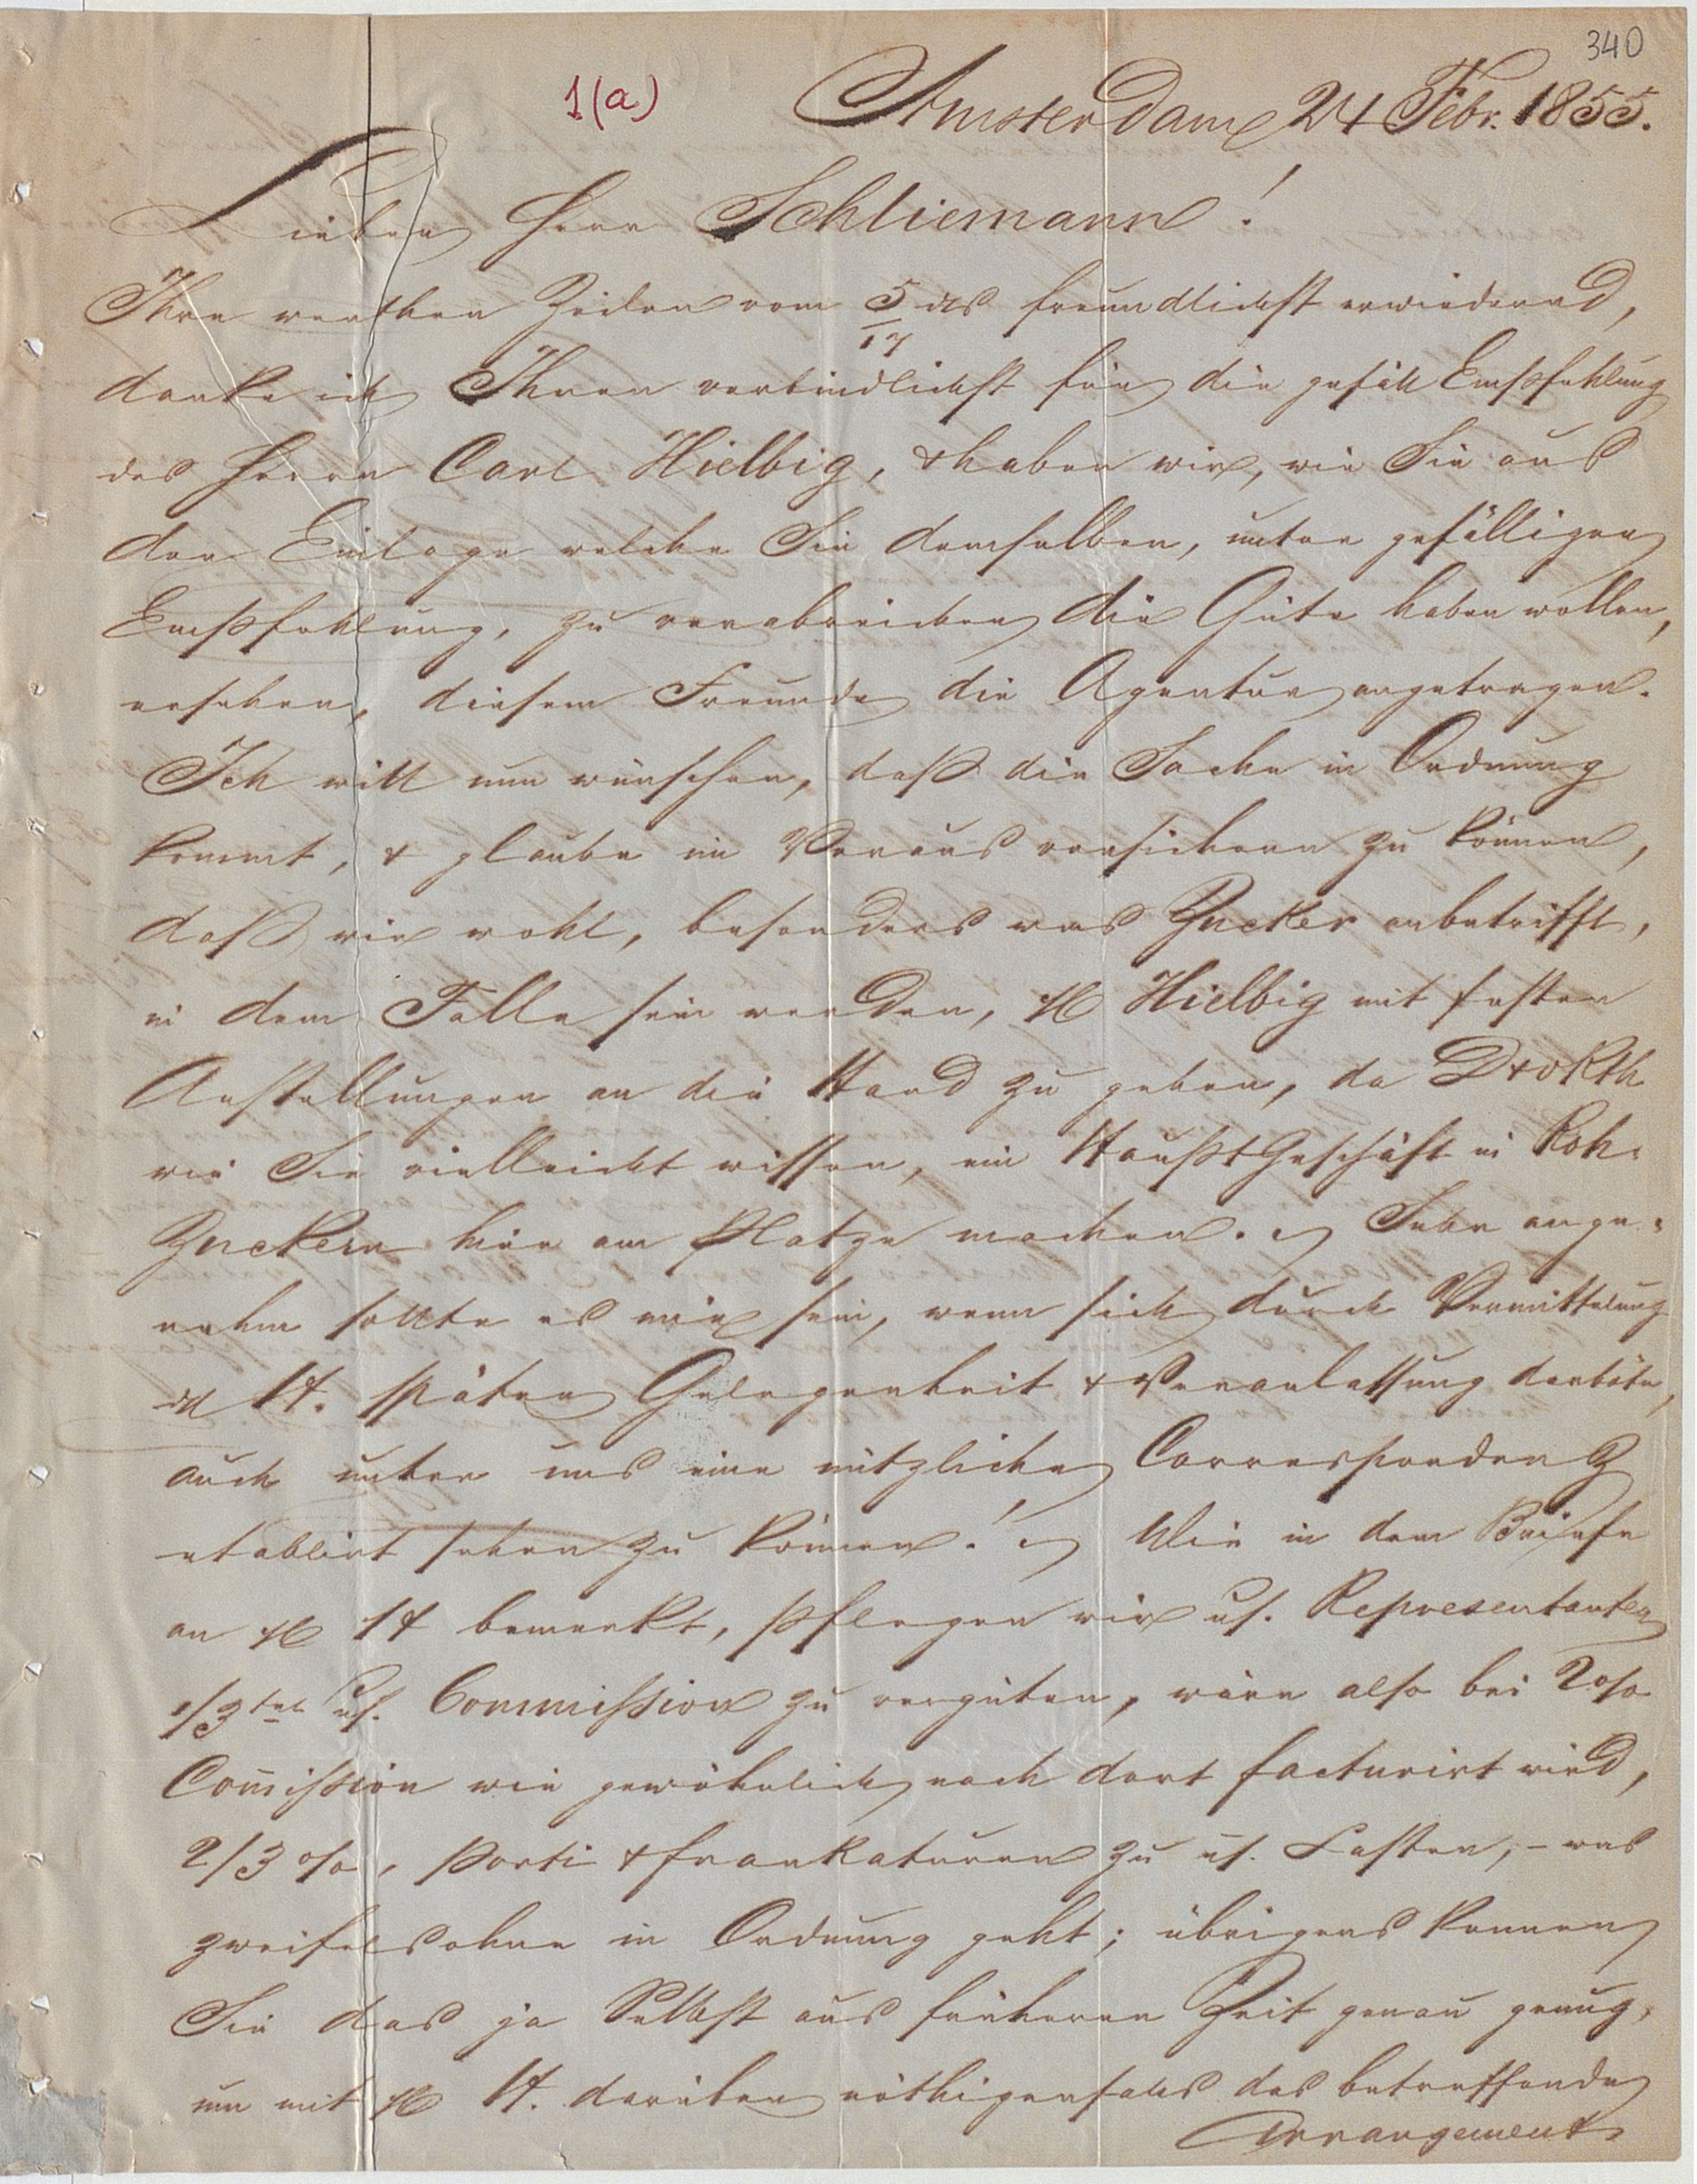 340
1(a)
Amsterdam 24 Febr. 1855.
Lieber Herr Schliemann!
Ihre werthen Zeilen vom 5/17 ds freundlichst erwiedernd,
danke ich Ihnen verbindlichst für die gefäll Empfehlung
des Herrn Carl Hielbig, & haben wir, wie Sie aus
der Einlage welche Sie demselben, unter gefälliger
Empfehlung, zu verabreichen die Güte haben wollen,
ersehen, diesem Freunde die Agentur angetragen.
Ich will nun wünschen, daß die Sache in Ordnung
kommt, & glaube im Voraus versichern zu können,
daß wir wohl, besonders was Zucker anbetrifft,
in dem Falle sein werden, H Hielbig mit festen
Anstellungen an die Hand zu geben, da
wie Sie vielleicht wissen, ein Haupt Geschäft in Roh-
Zuckern hier am Platze machen. Sehr ange-
nehm sollte es mir sein, wenn sich durch Vermittelung
d H. später Gelegenheit & Veranlassung darböte,
auch unter uns eine nützliche Correspondenz
etablirt sehen zu können! Wie in dem Briefe
an H H bemerkt, pflegen wir us. Representanten
1/3tel us. Commission zu vergüten, wäre also bei 2%
Com̄ission wie gewöhnlich nach dort facturirt wird,
2/3 %, Porti & Frankaturen zu us. Lasten, – was
zweifelsohne in Ordnung geht; übrigens kennen
Sie das ja Selbst aus früherer Zeit genau genug,
um mit H H. darüber nöthigenfalls das betreffende
Arrangement